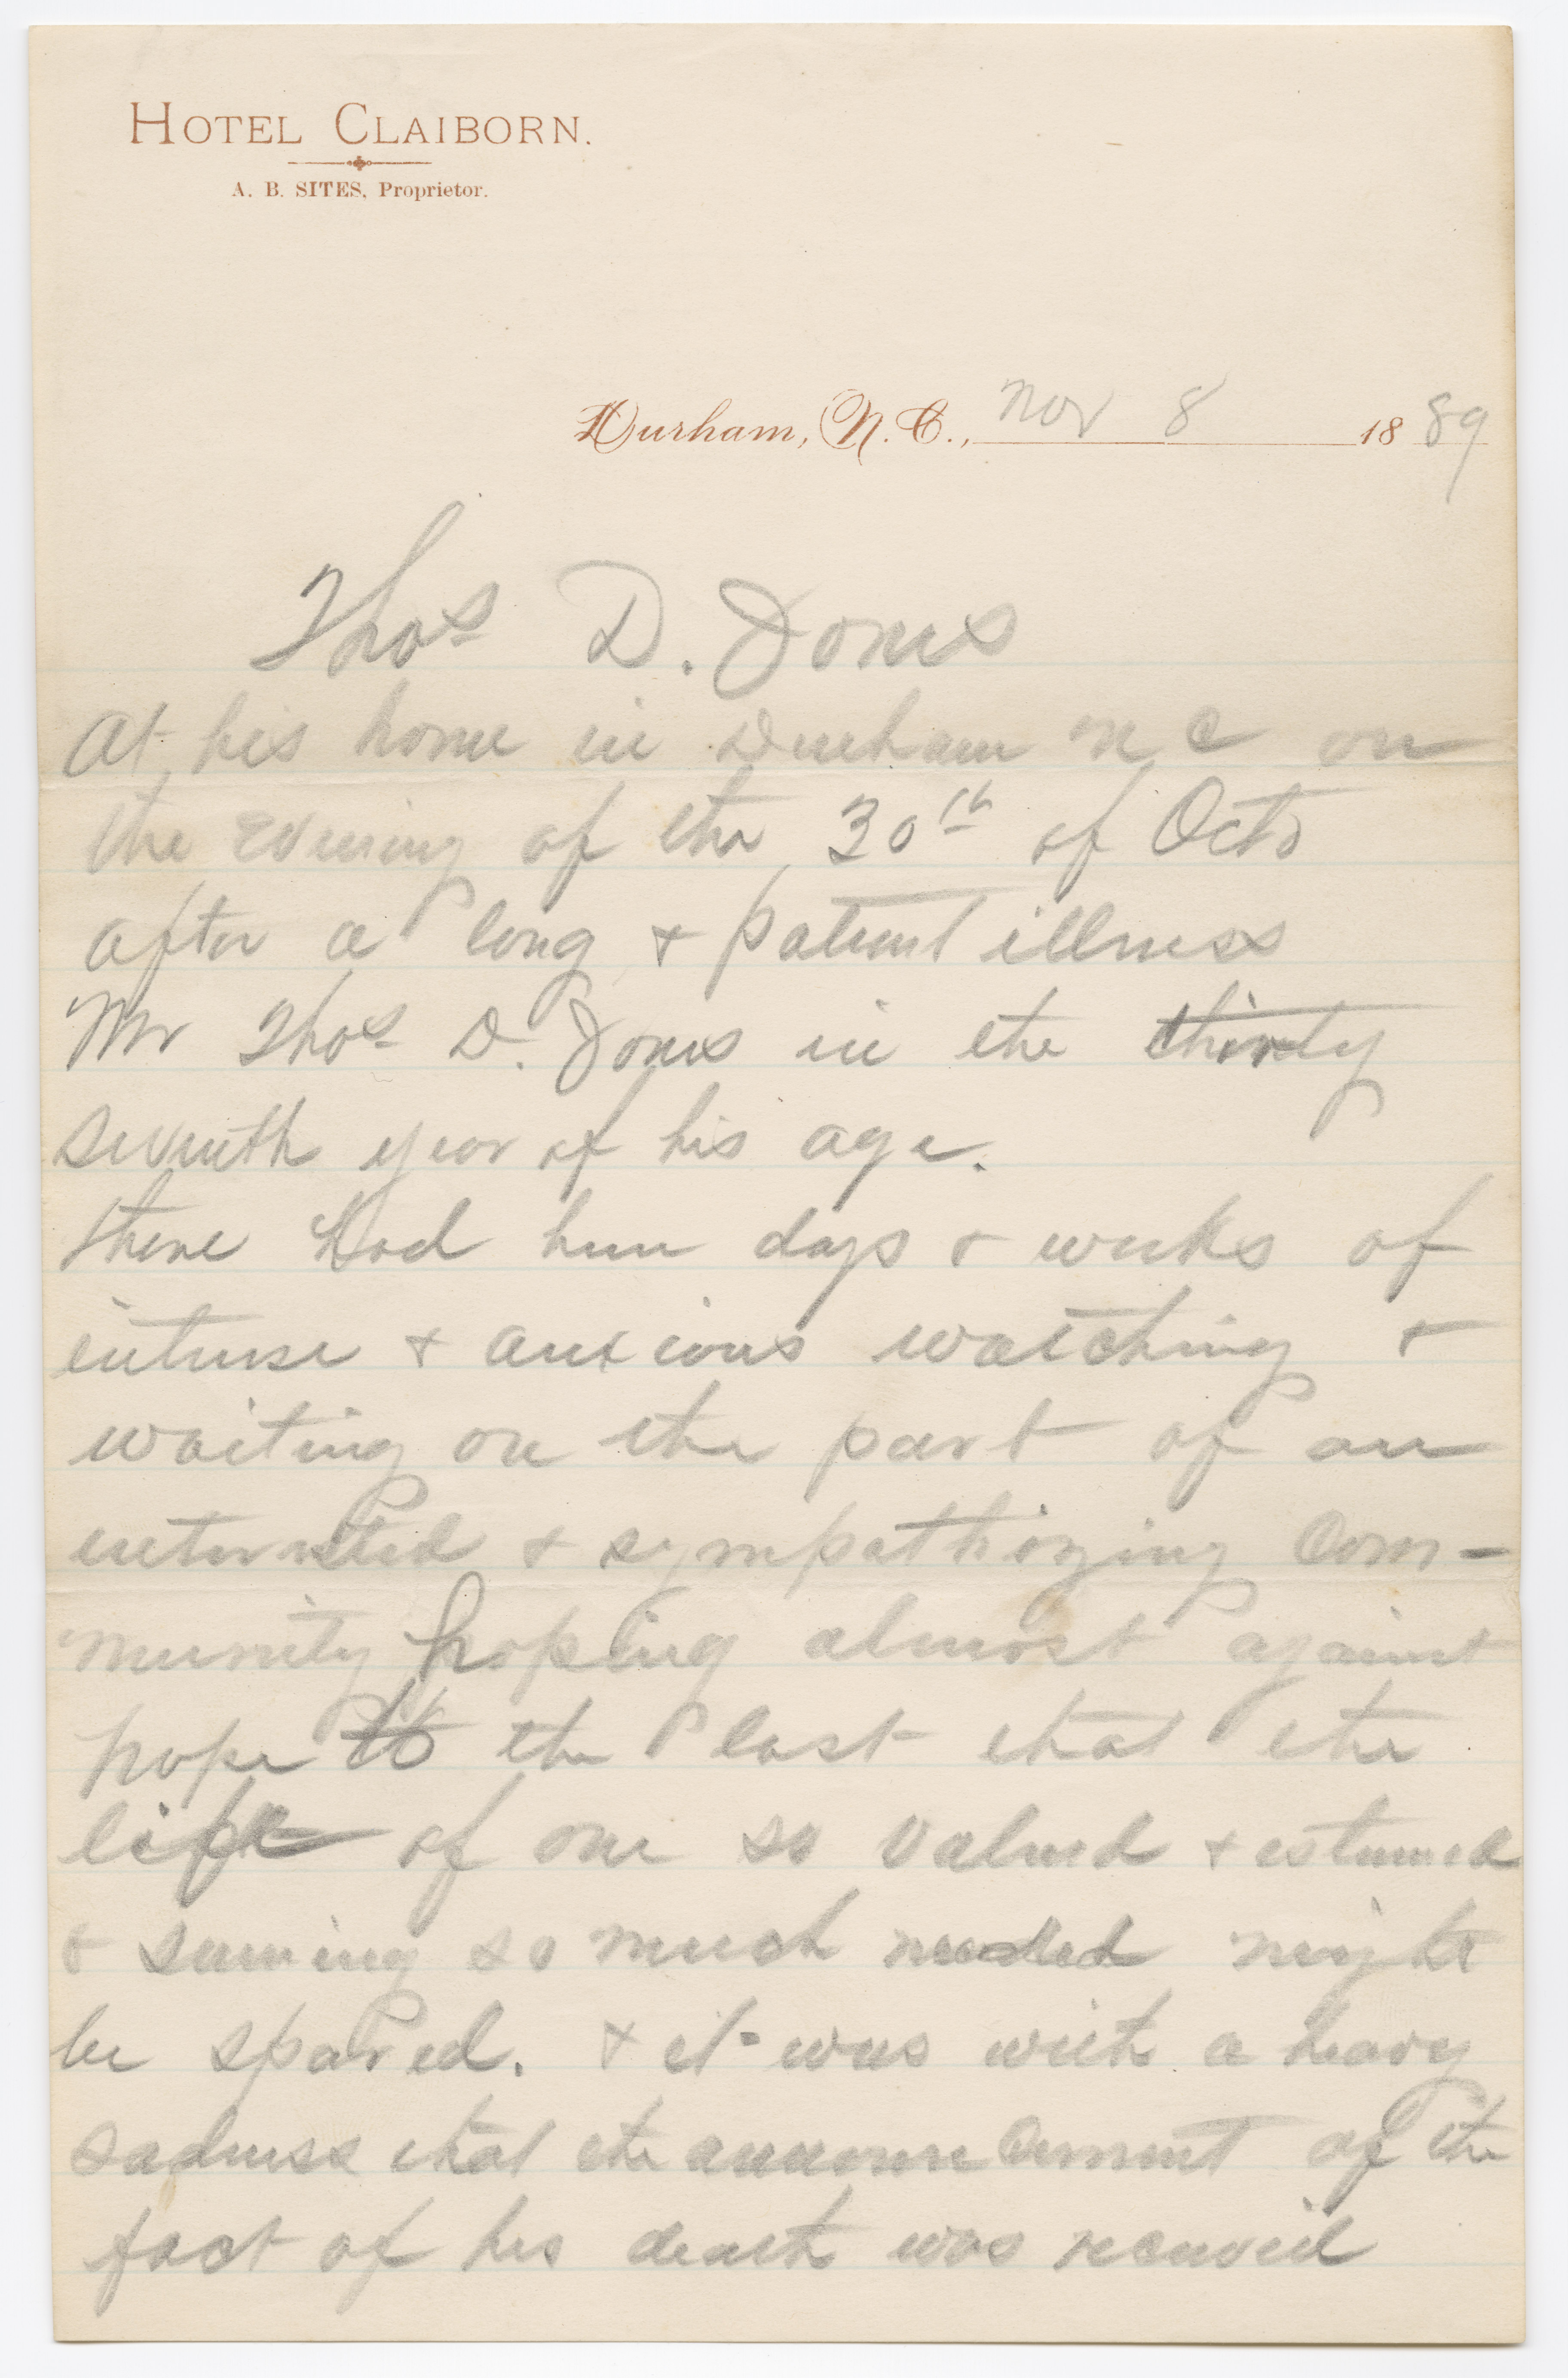 HOTEL CLAIBORN.
A. B. SITES, Proprietor.
Durham, N. C., Nov 8 1889
Thos D. Jones
At his home in Durham N C on
the evening of the 30th of Octo
after a long & patient illness
Mr Thos D. Jones in the thirty
seventh year of his age.
There had been days & weeks of
intense & anxious watching &
waiting on the part of an
interested & sympathizing Com-
munity hoping almost against
hope to the last that the
life of one so valued & esteemed
& seeming so much needed might
be spared. & it was with a heavy
sadness that the announcement of the
fact of his death was received